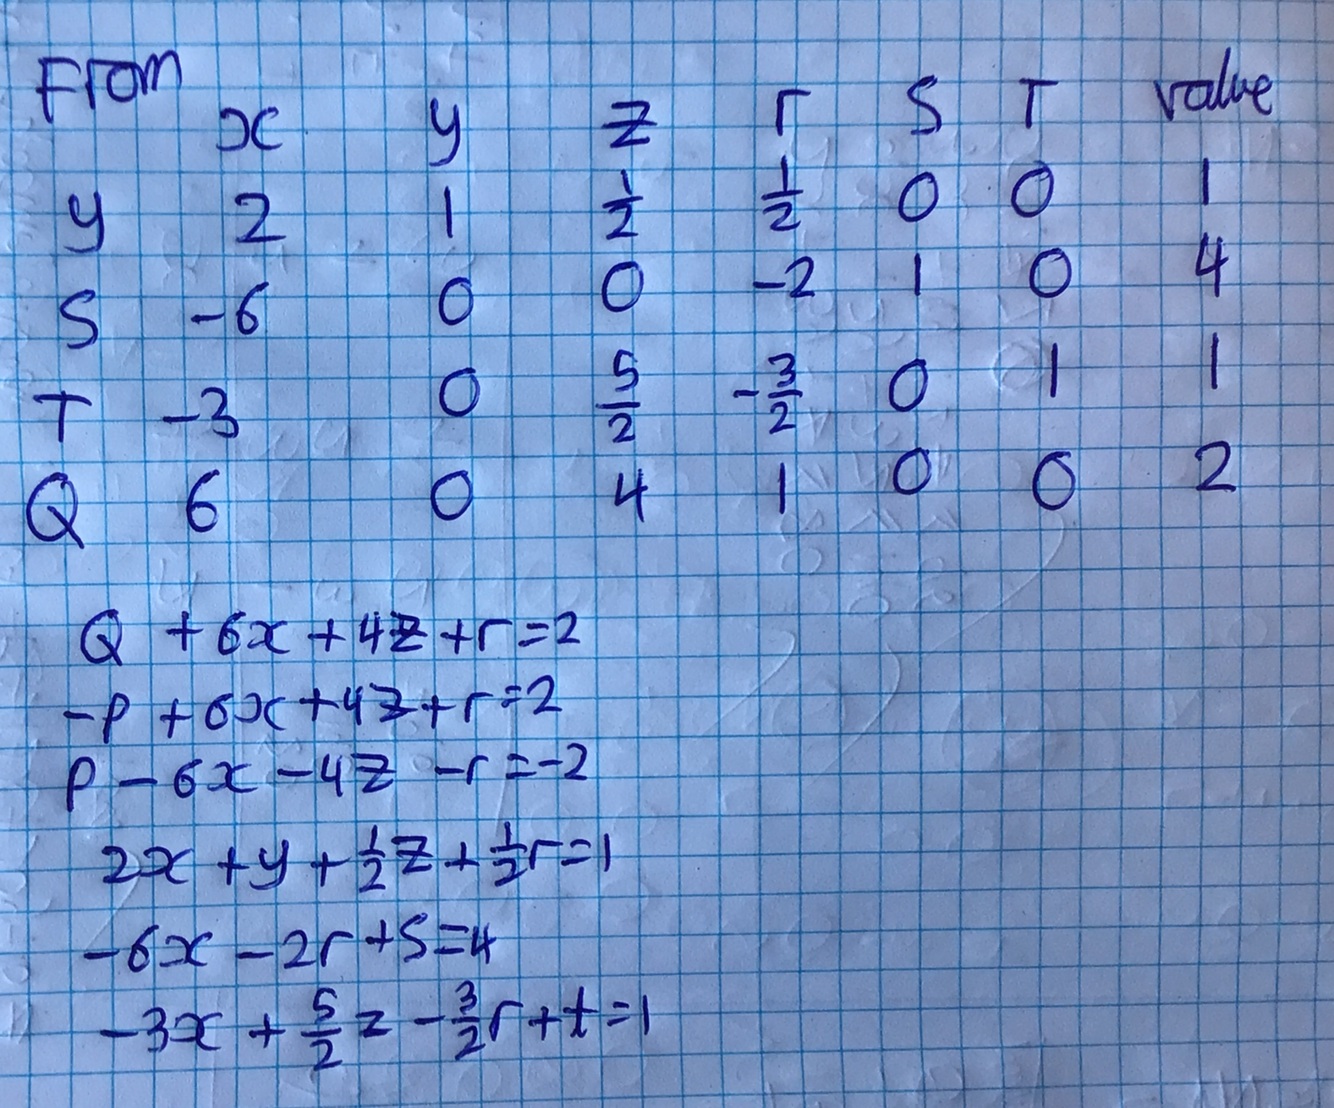 From x y z r S T value
y 2 1 1/2 1/2 0 0 1
S -6 0 0 -2 1 0 4
T -3 0 5/2 -3/2 0 1 1
Q 6 0 4 1 0 0 2
Q + 6x + 4z + r = 2
-P + 6x + 4z + r = 2
P - 6x - 4z - r = -2
2x + y + 1/2 z + 1/2 r = 1
-6x - 2r + S = 4
-3x + 5/2 z - 3/2 r + t = 1